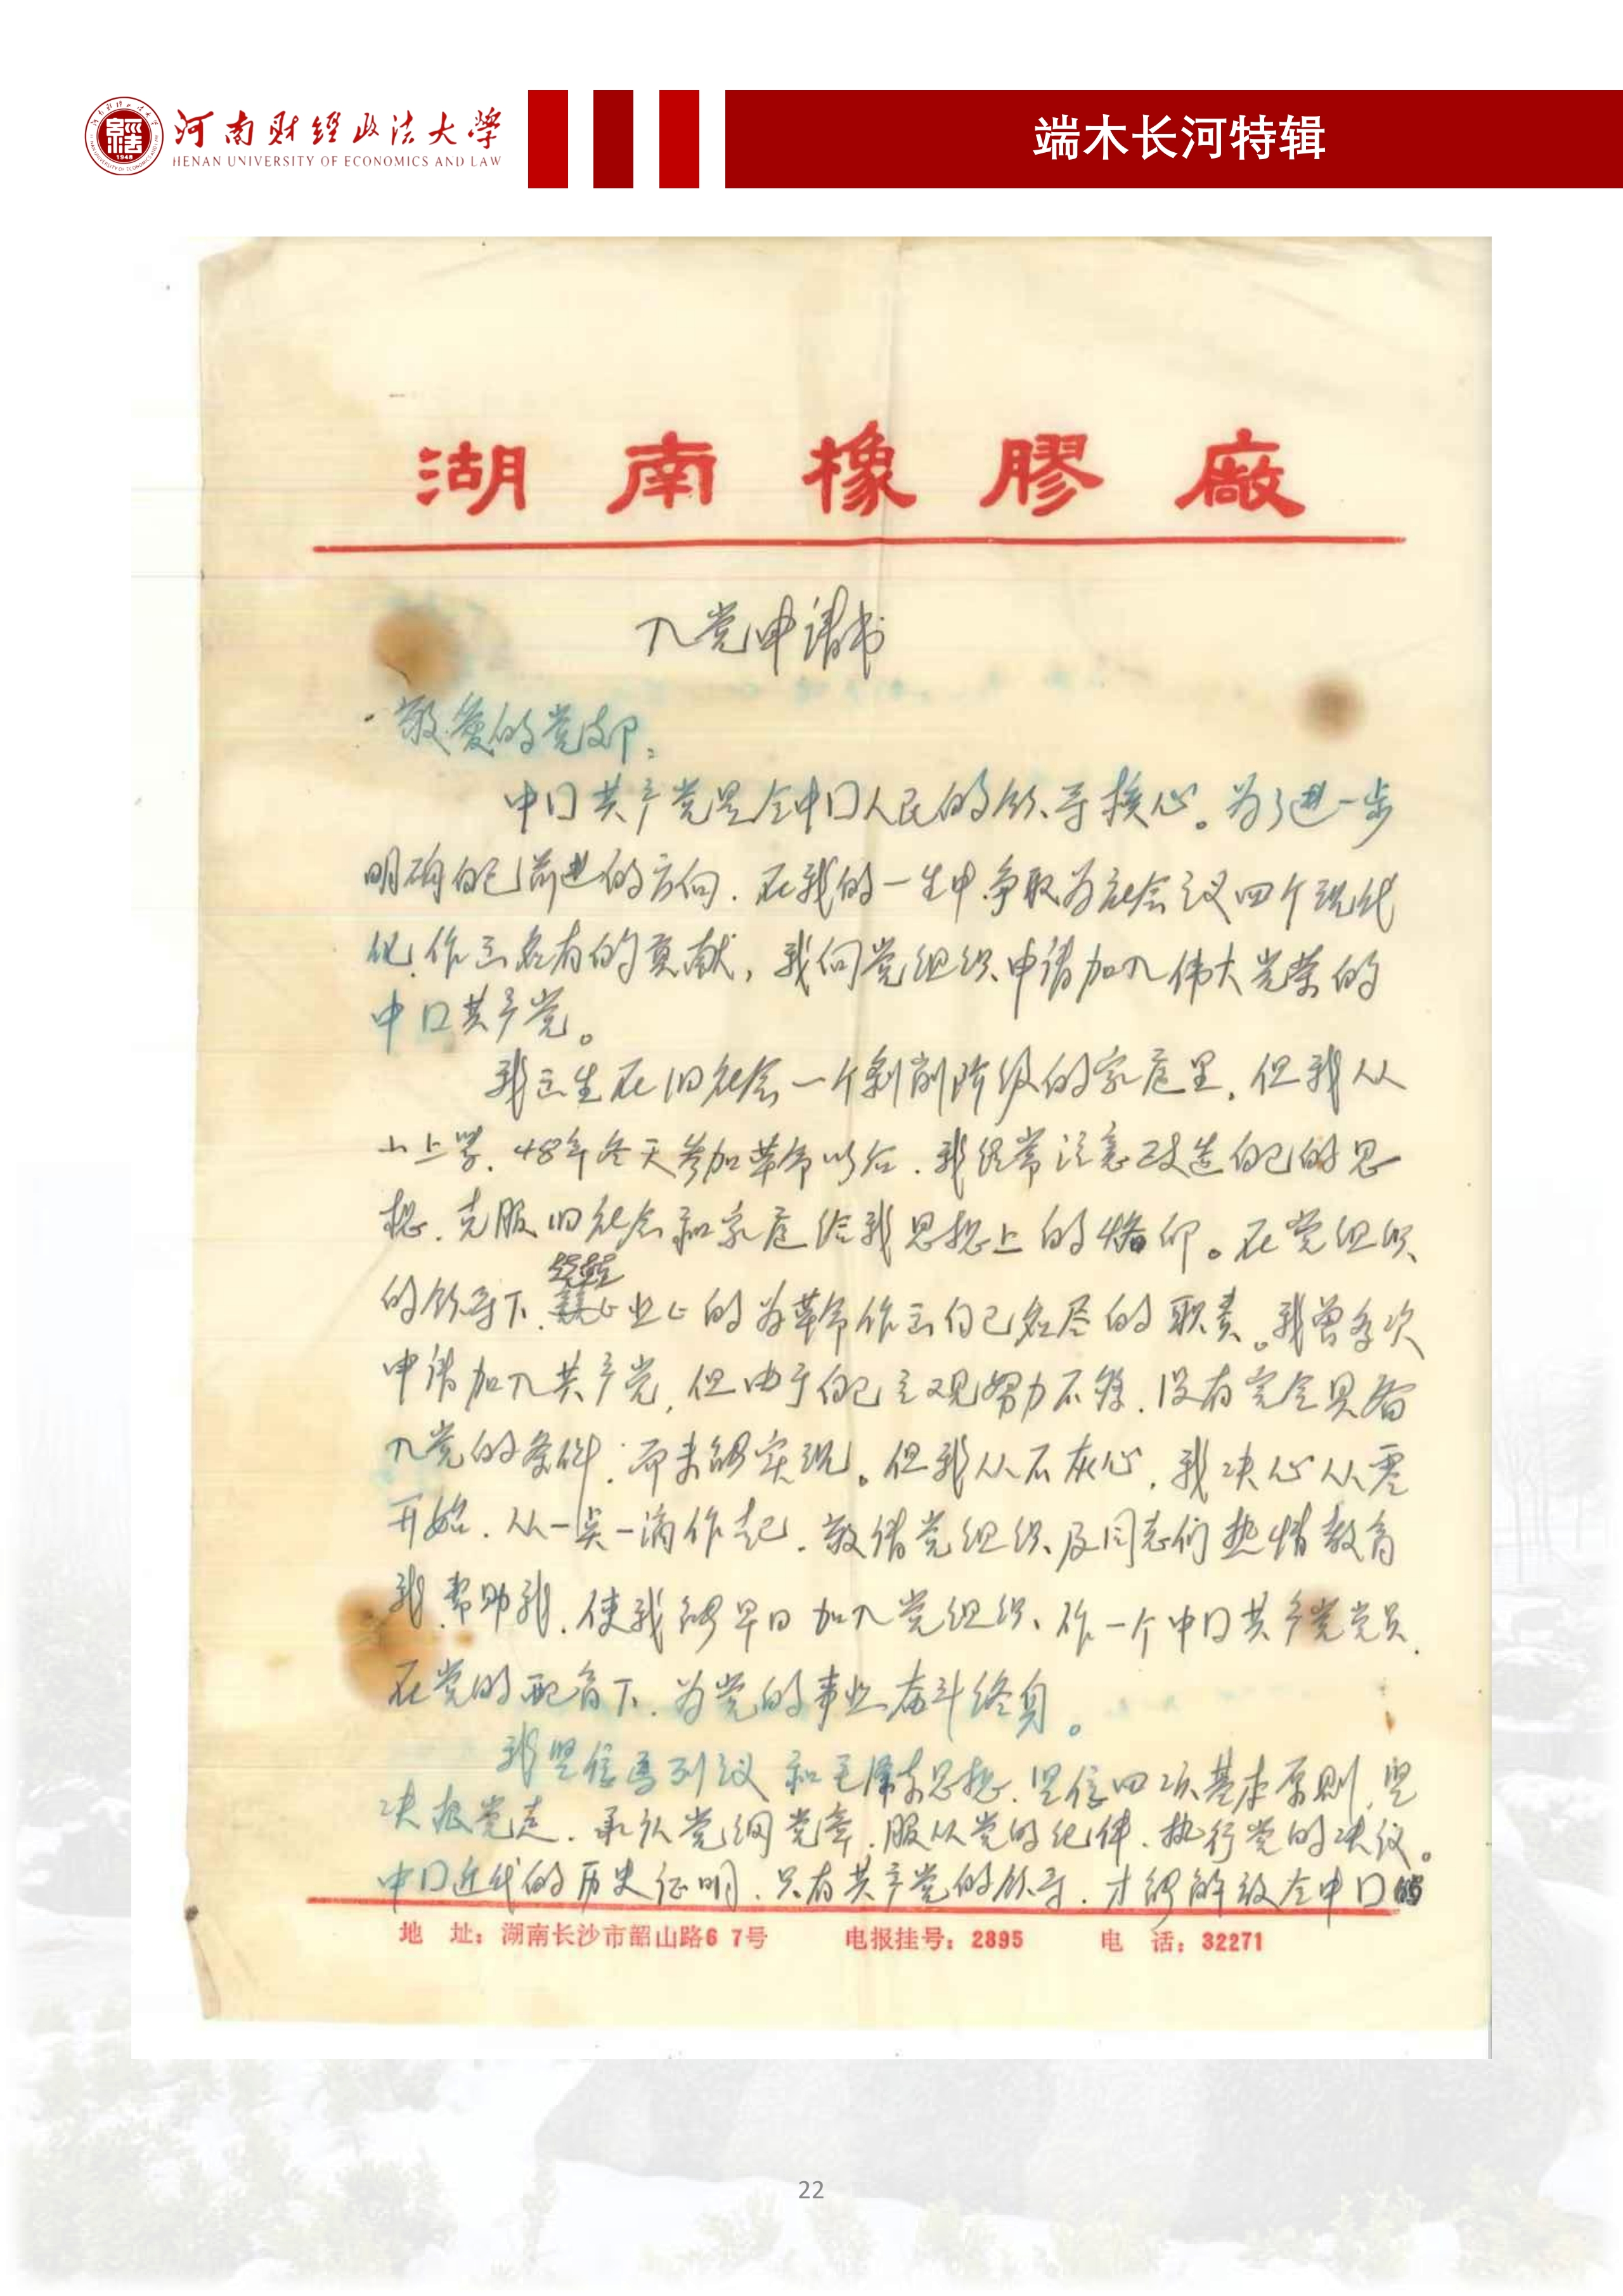 河南财经政法大学
HENAN UNIVERSITY OF ECONOMICS AND LAW
端木长河特辑
湖南橡膠廠
入党申请书
敬爱的党支部:
中国共产党是全中国人民的领导核心。为了进一步
明确自己前进的方向.在我的一生中争取为社会主义四个现代
化.作出应有的贡献,我向党组织申请加入伟大光荣的
中国共产党。
我出生在旧社会一个剥削阶级的家庭里.但我从
小上学.48年冬天参加革命以后.我经常注意改造自己的思
想.克服旧社会和家庭给我思想上的烙印。在党组织
的领导下.兢兢业业的为革命作出自己应尽的职责。我曾多次
申请加入共产党,但由于自己主观努力不够.没有完全具备
入党的条件.而未能实现。但我从不灰心.我决心从零
开始.从一点一滴作起.敬请党组织及同志们热情教育
我.帮助我.使我能早日加入党组织、作一个中国共产党党员.
在党的配育下.为党的事业奋斗终身。
我坚信马列主义和毛泽东思想.坚信四项基本原则,坚
决跟党走.承认党纲党章.服从党的纪律.执行党的决议。
中国近代的历史证明.只有共产党的领导.才能解放全中国的
地 址:湖南长沙市韶山路67号 电报挂号:2895 电 话:32271
22